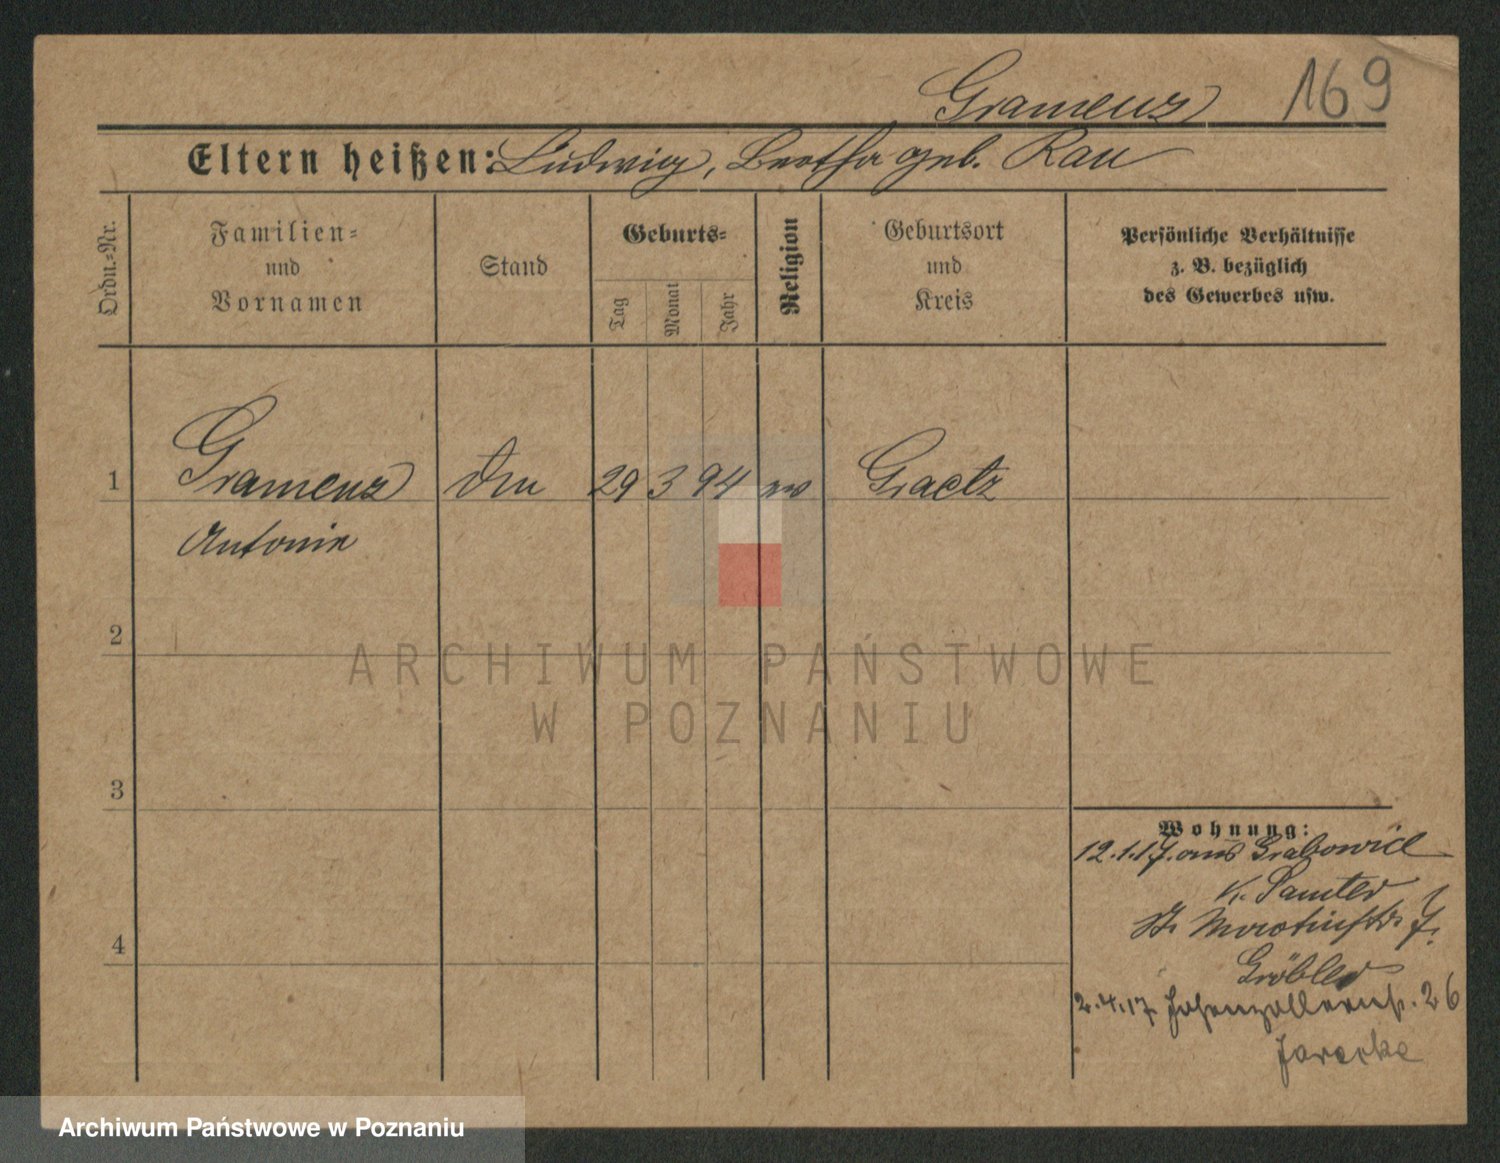 Gramenz 169
Eltern heißen: Ludwig, Bertha geb. Rau
Ordn.-Nr.
Familien- und Vornamen
Stand
Geburts-
Tag
Monat
Jahr
Religion
Geburtsort und Kreis
Persönliche Verhältnisse
z. B. bezüglich
des Gewerbes usw.
1 Gramenz 29 3 94 Graetz
Antonie
2
3
4
Wohnung:
12.1.17. aus Grabowiec
K. Samter
St. Martinstr. 7.
Gröbler
2.4.17 Hohenzollernstr. 26
ARCHIWUM PAŃSTWOWE
W POZNANIU
Archiwum Państwowe w Poznaniu